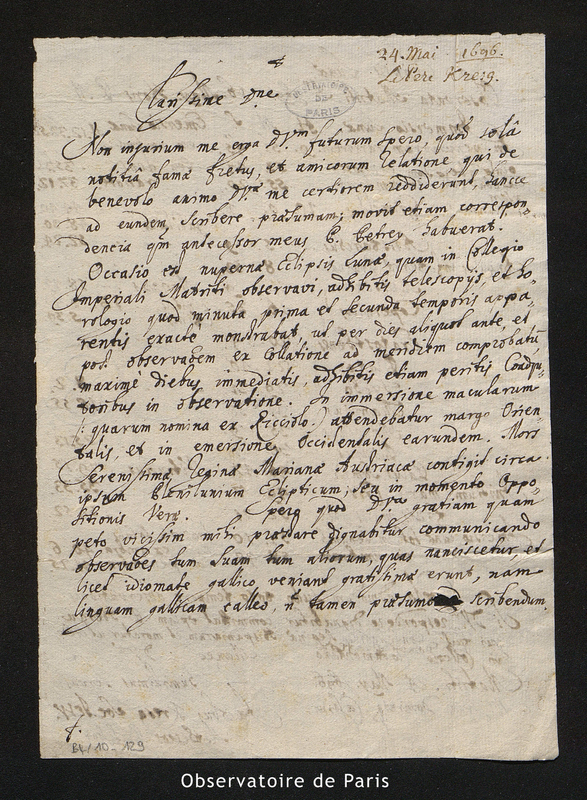 24. Mai 1696.
Le Pere Kresa.
Clarissime Dne
Non injurium me erga D.Vm futurum spero, quod solâ
notitiâ famæ fretus, et amicorum relatione qui de
benevolo animo D.Væ me certiorem reddiderunt, hancce
ad eundem scribere præsumam; movit etiam correspon-
dencia qm antecessor meus P. Petrey habuerat.
Occasio est nupernæ Eclipsis Lunæ, quam in Collegio
Imperiali Matriti observavi, adhibitis telescopijs, et ho-
rologio quod minuta prima et secunda temporis appa-
rentis exactè monstrabat ut per dies aliquot ante et
post observaoem ex Collatione ad meridiem comprobatũ
maximè diebus immediatis, adhibitis etiam peritis Coadju-
toribus in observatione. In immersione macularum
(: quarum nomina ex Ricciolo:) attendebatur margo Orien-
talis, et in emersione Occidentalis earundem. Mors
Serenissimæ Reginæ Marianæ Austriacæ contigit circa
ipsum plenilunium Eclipticum, seu in momento Oppo-
sitionis Veræ. Spero quod D.Va gratiam quam
peto vicissim mihi præstare dignabitur communicando
observaoes tum suam tum aliorum, quas nanciscetur, et
licet idiomate gallico, veniant gratissimæ erunt, nam
linguam gallicam calleo, nt tamen præsumo scribendum.
B4/10-129
PARIS
Observatoire de Paris